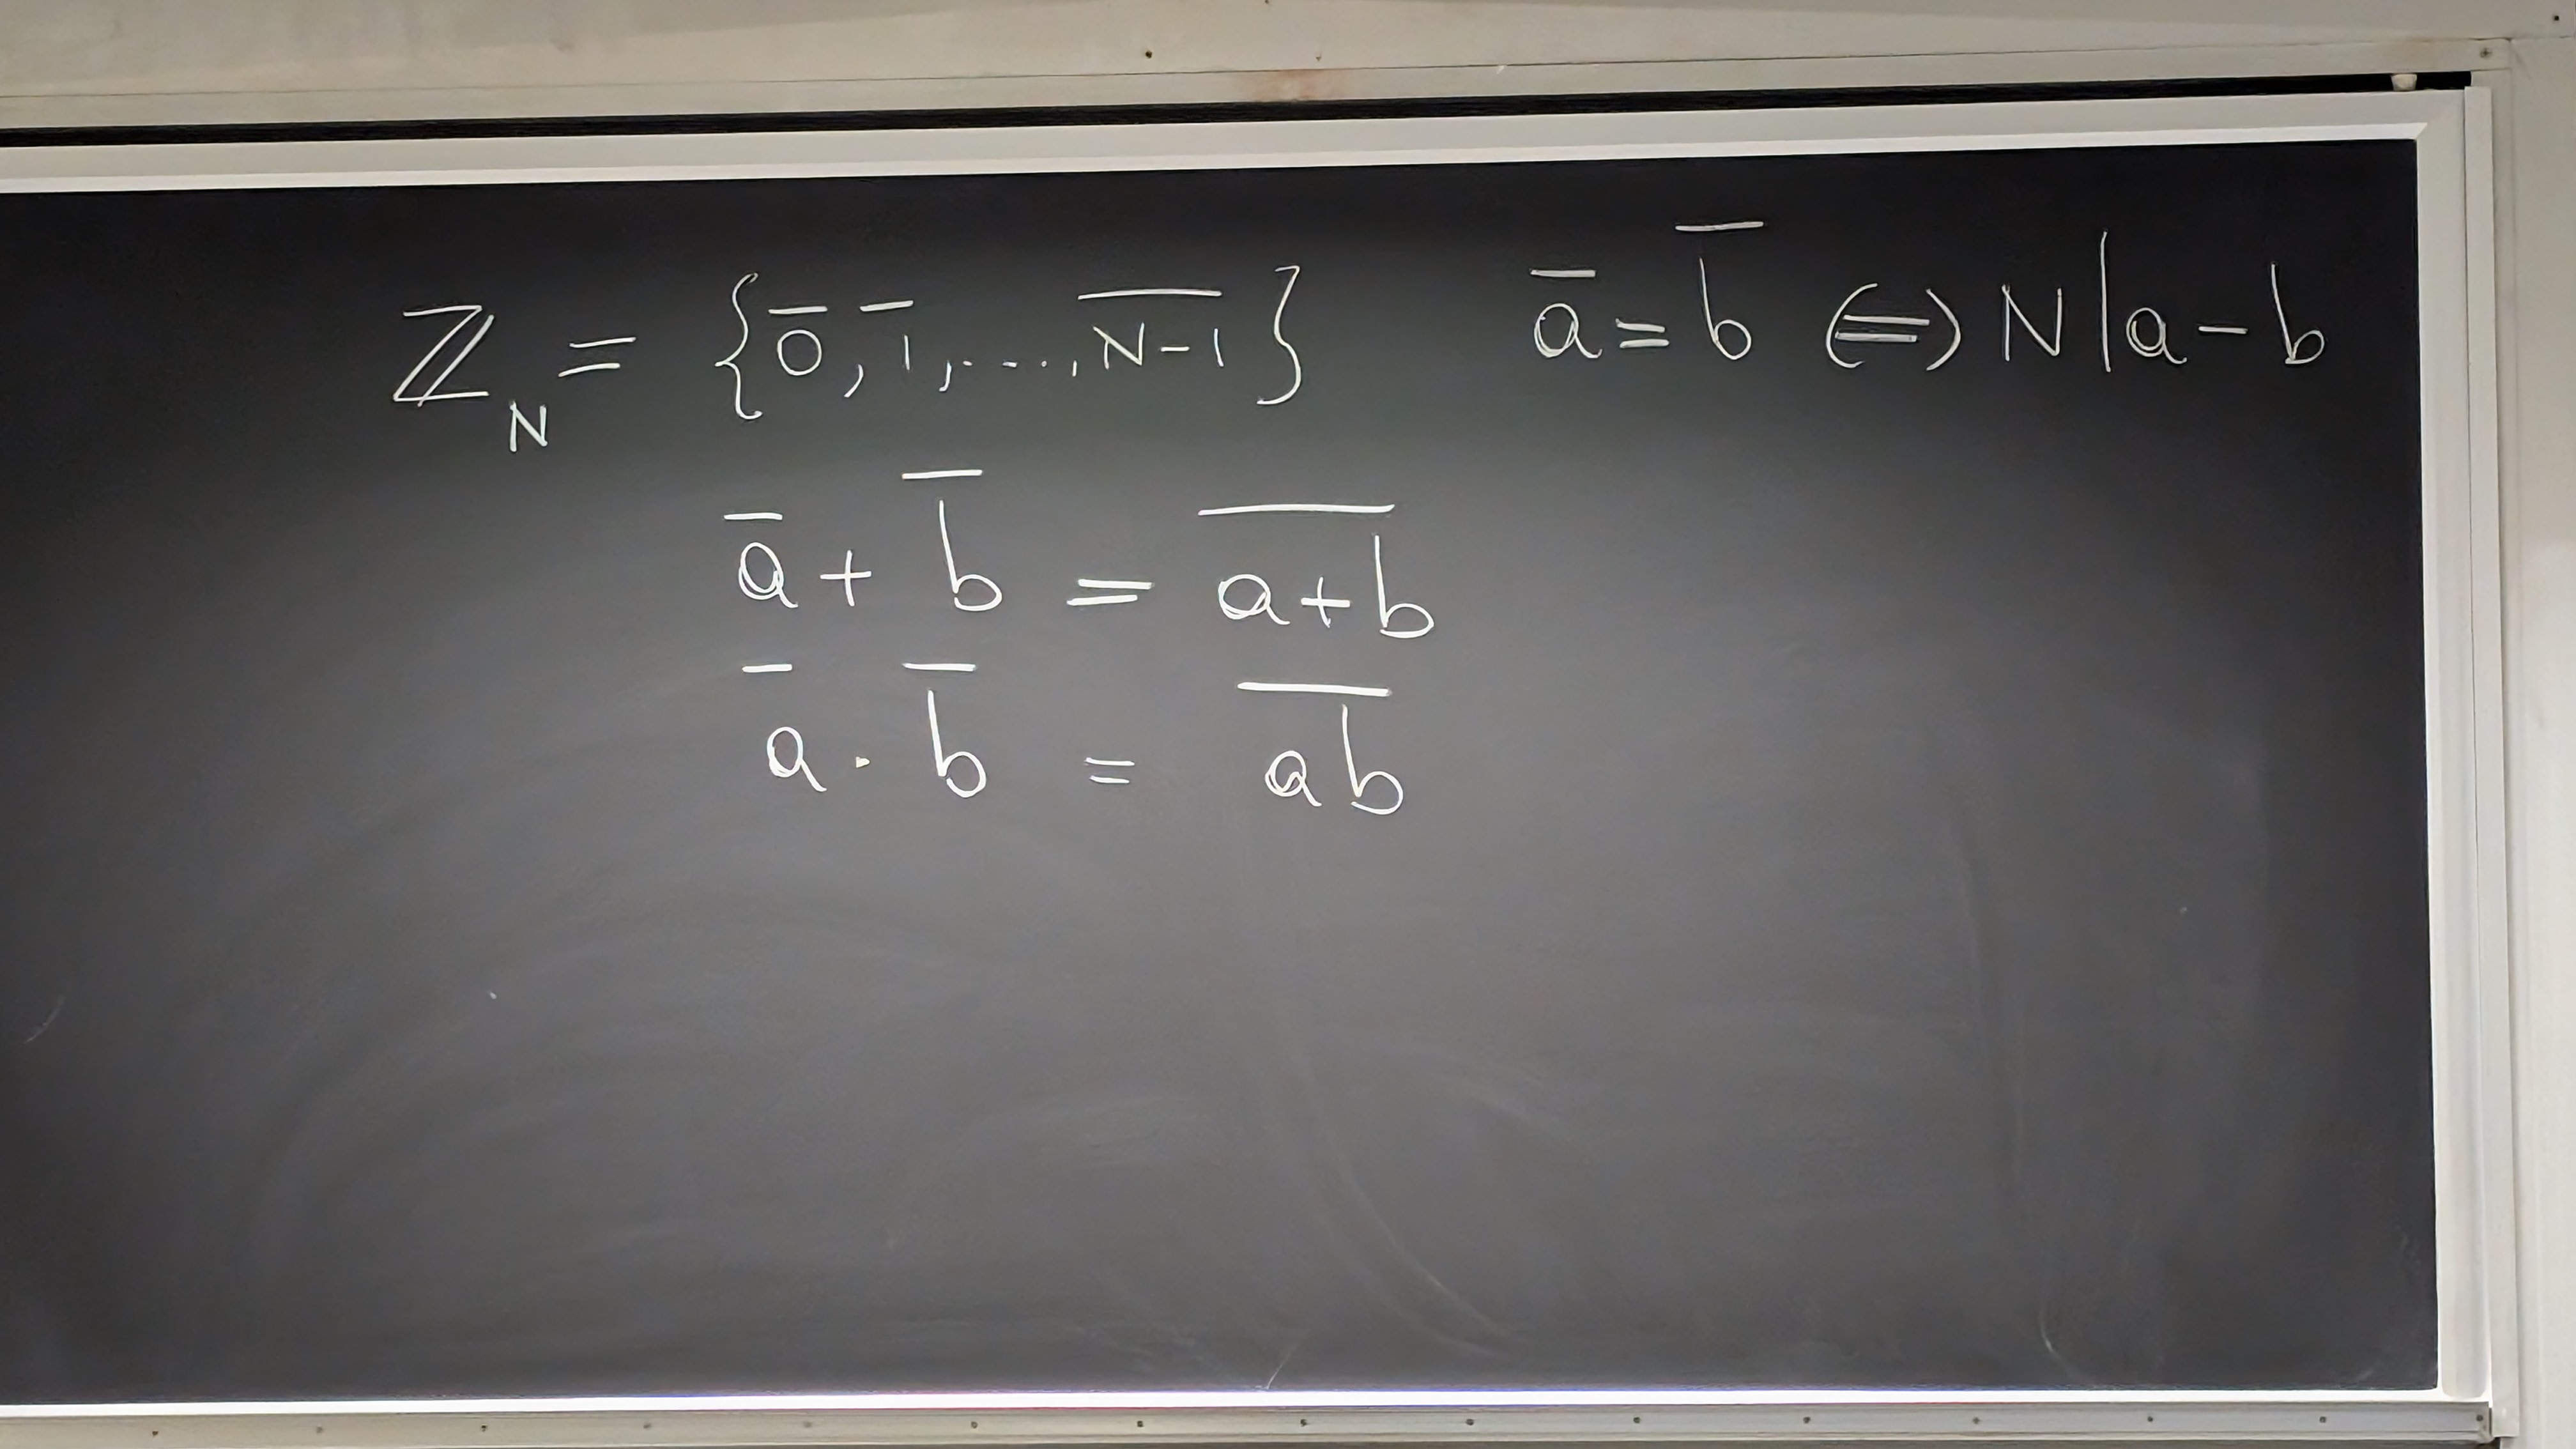 ℤ_N = {0̅, 1̅, ..., N̅-̅1̅} a̅ = b̅ ⇔ N | a - b
a̅ + b̅ = a̅+̅b̅
a̅ · b̅ = a̅b̅